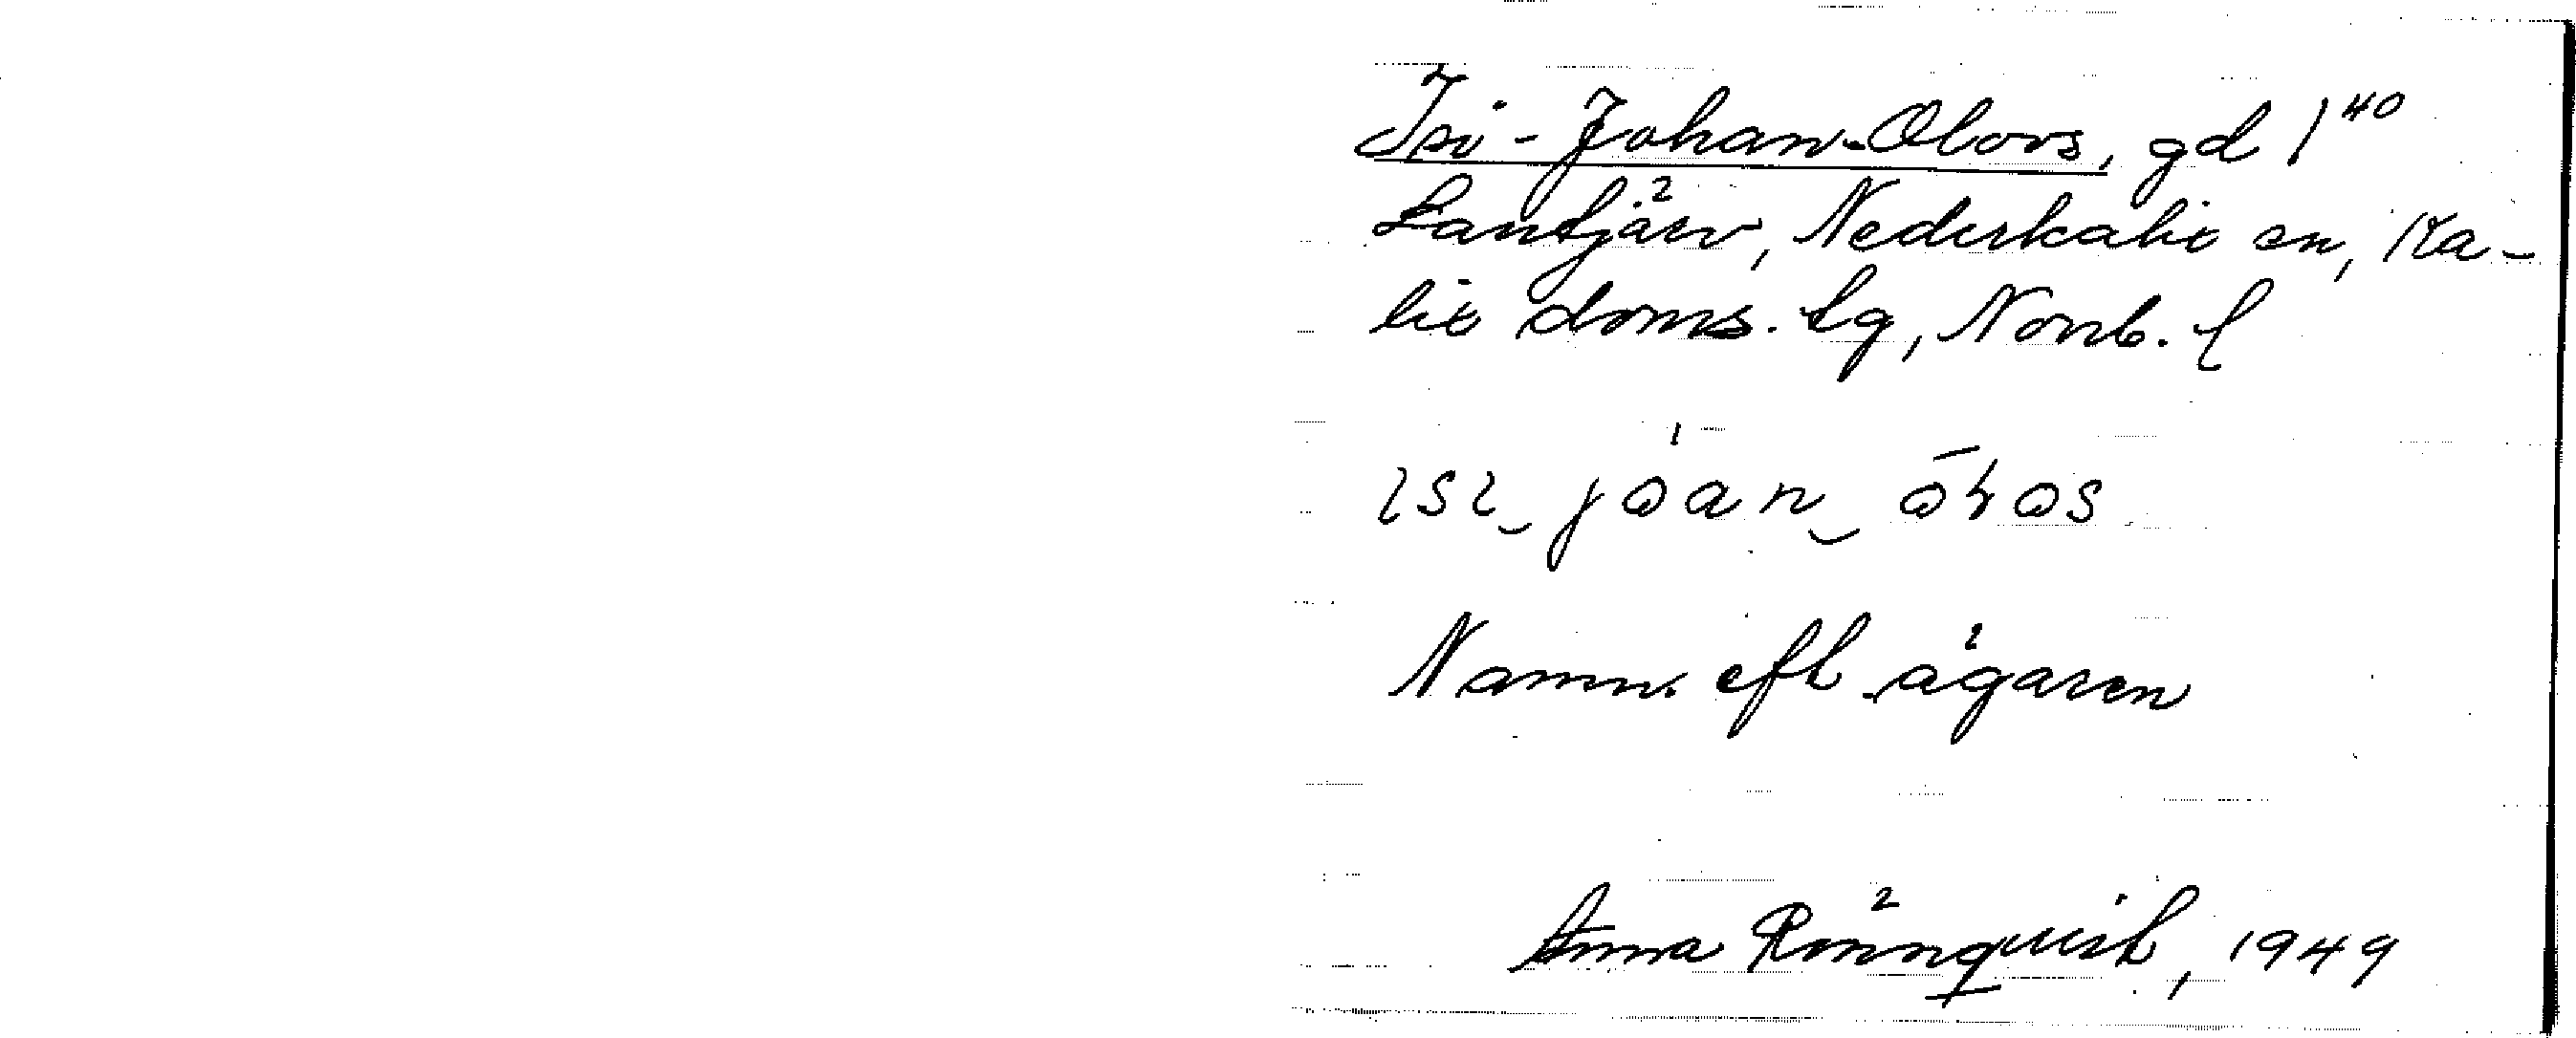 Isi-Johan-Olovs, gd 1⁴⁰
Lantjärv, Nederkalix sn, Ka-
lix doms. lg, Norrb. l
Namn. eft ägaren
Anna Rönnqvist, 1949